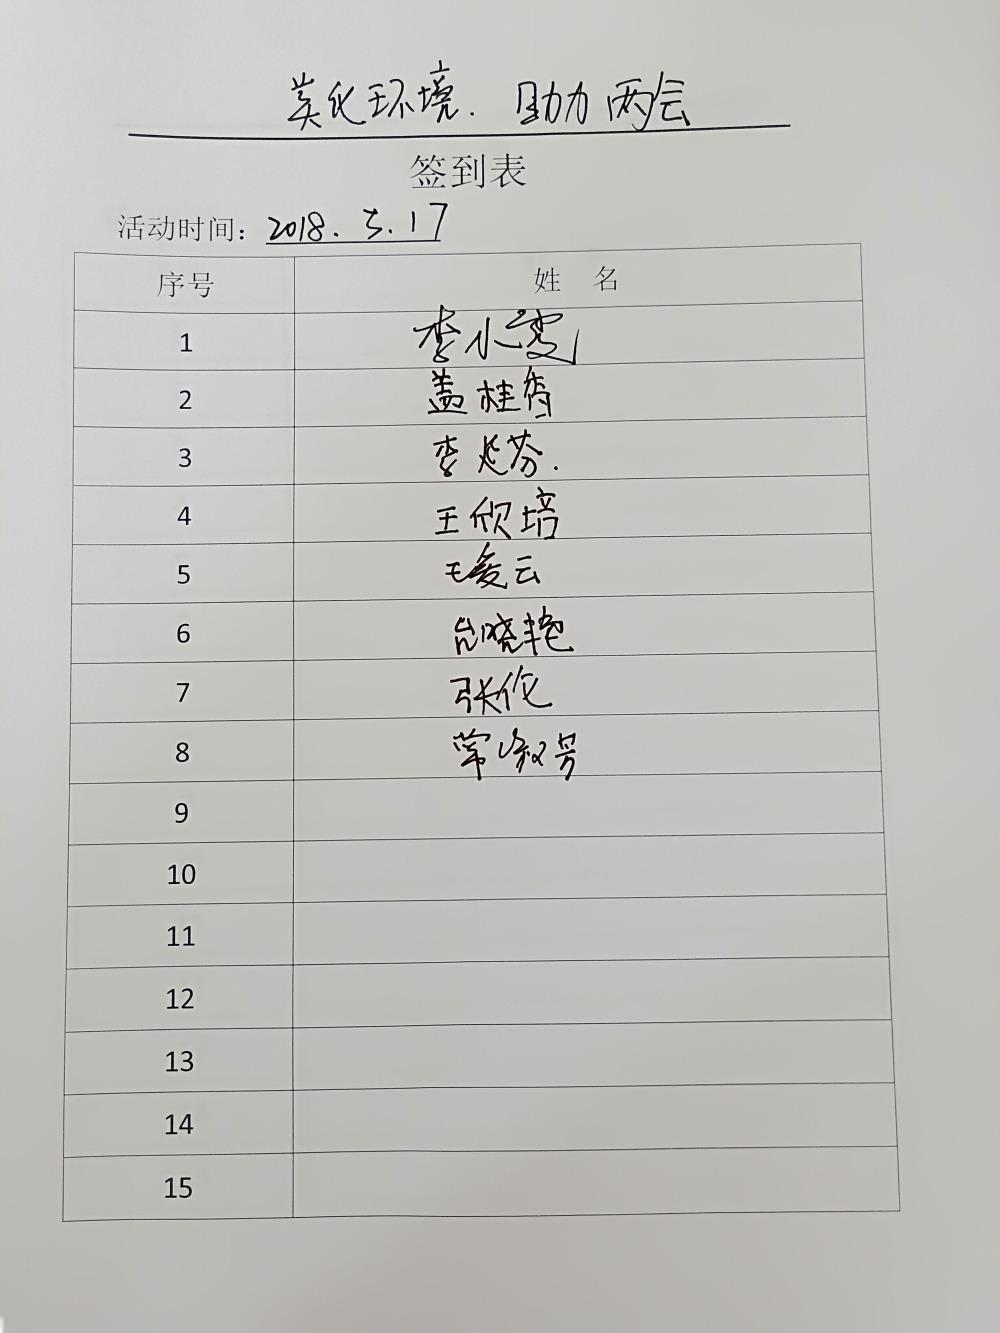 美化环境. 助力两会
签到表
活动时间: 2018.5.17
序号 姓 名
1 李小雯
2 盖桂香
3 李延芬.
4 王欣培
5 王爱云
6 台晓艳
7 张伦
8 常淑芳
9
10
11
12
13
14
15